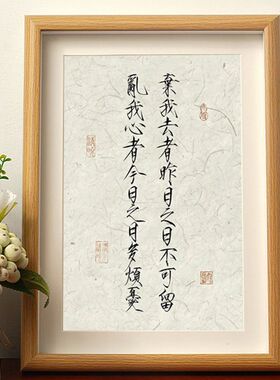 棄我去者昨日之日不可留
亂我心者今日之日多煩憂